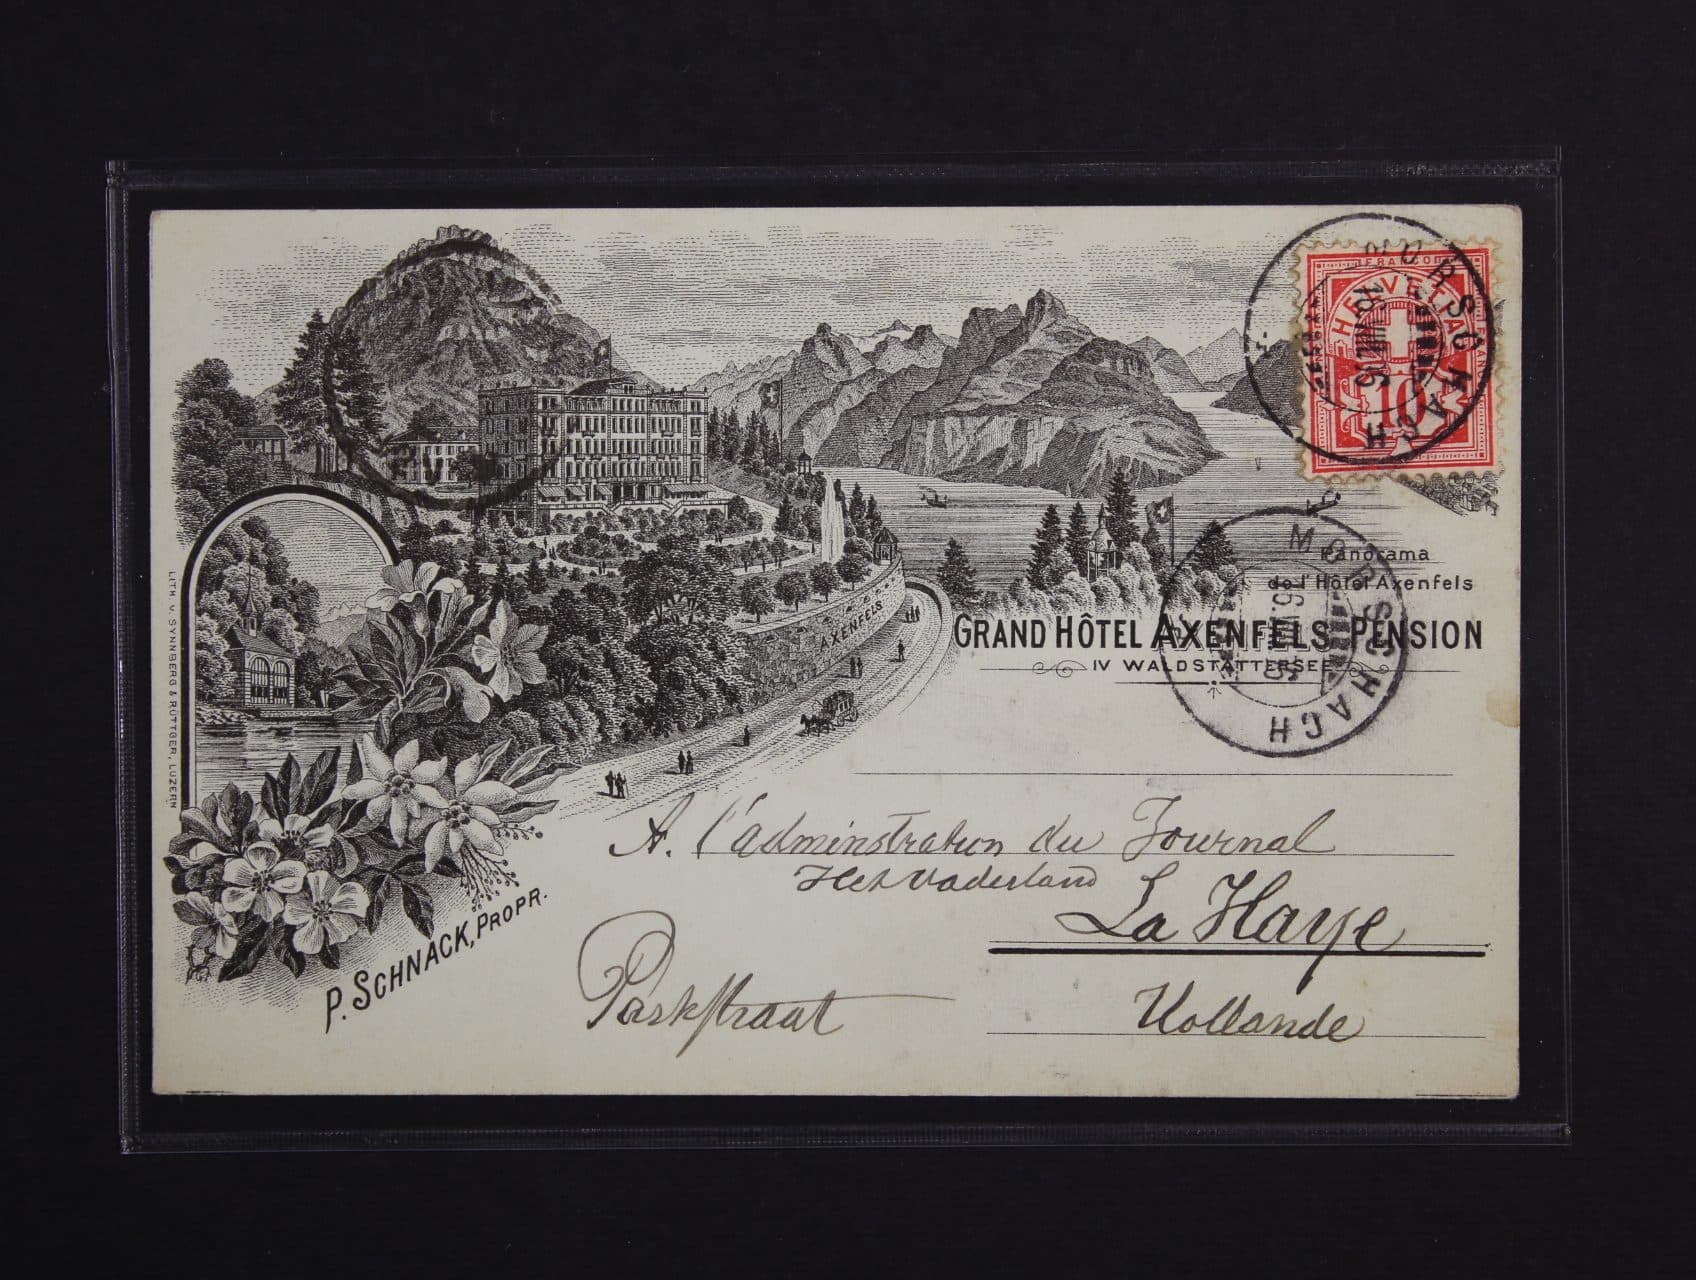 FRANCO
HELVETIA
FRANCO
10
MORSCHACH
Panorama
de l'Hôtel Axenfels
GRAND HÔTEL AXENFELS-PENSION
IV WALDSTÄTTERSEE
MORSCHACH
AXENFELS
LITH. V. SYNNBERG & RÜTTGER, LUZERN
P. SCHNACK, PROPR.
A. l'adminstration du Journal
Het vaderland
La Haye
Parkstraat
Hollande